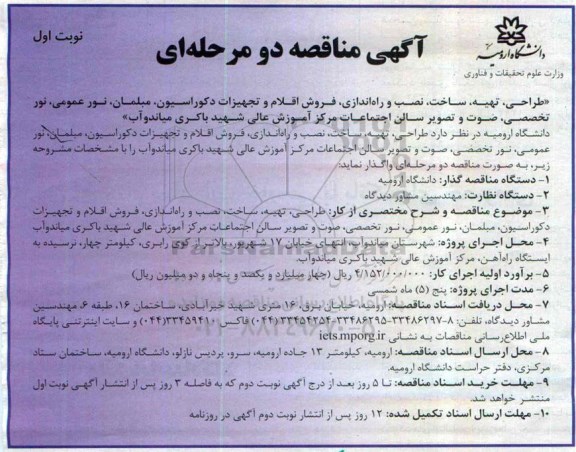 نوبت اول
آگهی مناقصه دو مرحله‌ای
دانشگاه ارومیه
وزارت علوم تحقیقات و فناوری
«طراحی، تهیه، ساخت، نصب و راه‌اندازی، فروش اقلام و تجهیزات دکوراسیون، مبلمان، نور عمومی، نور
تخصصی، صوت و تصویر سالن اجتماعات مرکز آموزش عالی شهید باکری میاندوآب»
دانشگاه ارومیه در نظر دارد طراحی، تهیه، ساخت، نصب و راه‌اندازی، فروش اقلام و تجهیزات دکوراسیون، مبلمان، نور
عمومی، نور تخصصی، صوت و تصویر سالن اجتماعات مرکز آموزش عالی شهید باکری میاندوآب را با مشخصات مشروحه
زیر، به صورت مناقصه دو مرحله‌ای واگذار نماید:
۱- دستگاه مناقصه گذار: دانشگاه ارومیه
۲- دستگاه نظارت: مهندسین مشاور دیدگاه
۳- موضوع مناقصه و شرح مختصری از کار: طراحی، تهیه، ساخت، نصب و راه‌اندازی، فروش اقلام و تجهیزات
دکوراسیون، مبلمان، نور عمومی، نور تخصصی، صوت و تصویر سالن اجتماعات مرکز آموزش عالی شهید باکری میاندوآب
۴- محل اجرای پروژه: شهرستان میاندوآب، انتهای خیابان ۱۷ شهریور، بالاتر از کوی رابری، کیلومتر چهار، نرسیده به
ایستگاه راه‌آهن، مرکز آموزش عالی شهید باکری میاندوآب.
۵- برآورد اولیه اجرای کار: ۴/۱۵۲/۰۰۰/۰۰۰ ریال (چهار میلیارد و یکصد و پنجاه و دو میلیون ریال)
۶- مدت اجرای پروژه: پنج (۵) ماه شمسی
۷- محل دریافت اسناد مناقصه: ارومیه، خیابان برق، ۱۶ متری شهید خیرآبادی، ساختمان ۱۶، طبقه ۶، مهندسین
مشاور دیدگاه، تلفن: ۸-۳۳۴۸۶۲۹۷-۳۳۴۸۶۲۹۵-۳۳۴۵۴۲۵۲(۰۴۴) فاکس: ۳۳۴۵۹۴۱۰(۰۴۴) و سایت اینترنتی پایگاه
ملی اطلاع‌رسانی مناقصات به نشانی iets.mporg.ir
۸- محل ارسال اسناد مناقصه: ارومیه، کیلومتر ۱۳ جاده ارومیه، سرو، پردیس نازلو، دانشگاه ارومیه، ساختمان ستاد
مرکزی، دفتر حراست دانشگاه ارومیه.
۹- مهلت خرید اسناد مناقصه: تا ۵ روز بعد از درج آگهی نوبت دوم که به فاصله ۳ روز پس از انتشار آگهی نوبت اول
منتشر خواهد شد.
۱۰- مهلت ارسال اسناد تکمیل شده: ۱۲ روز پس از انتشار نوبت دوم آگهی در روزنامه